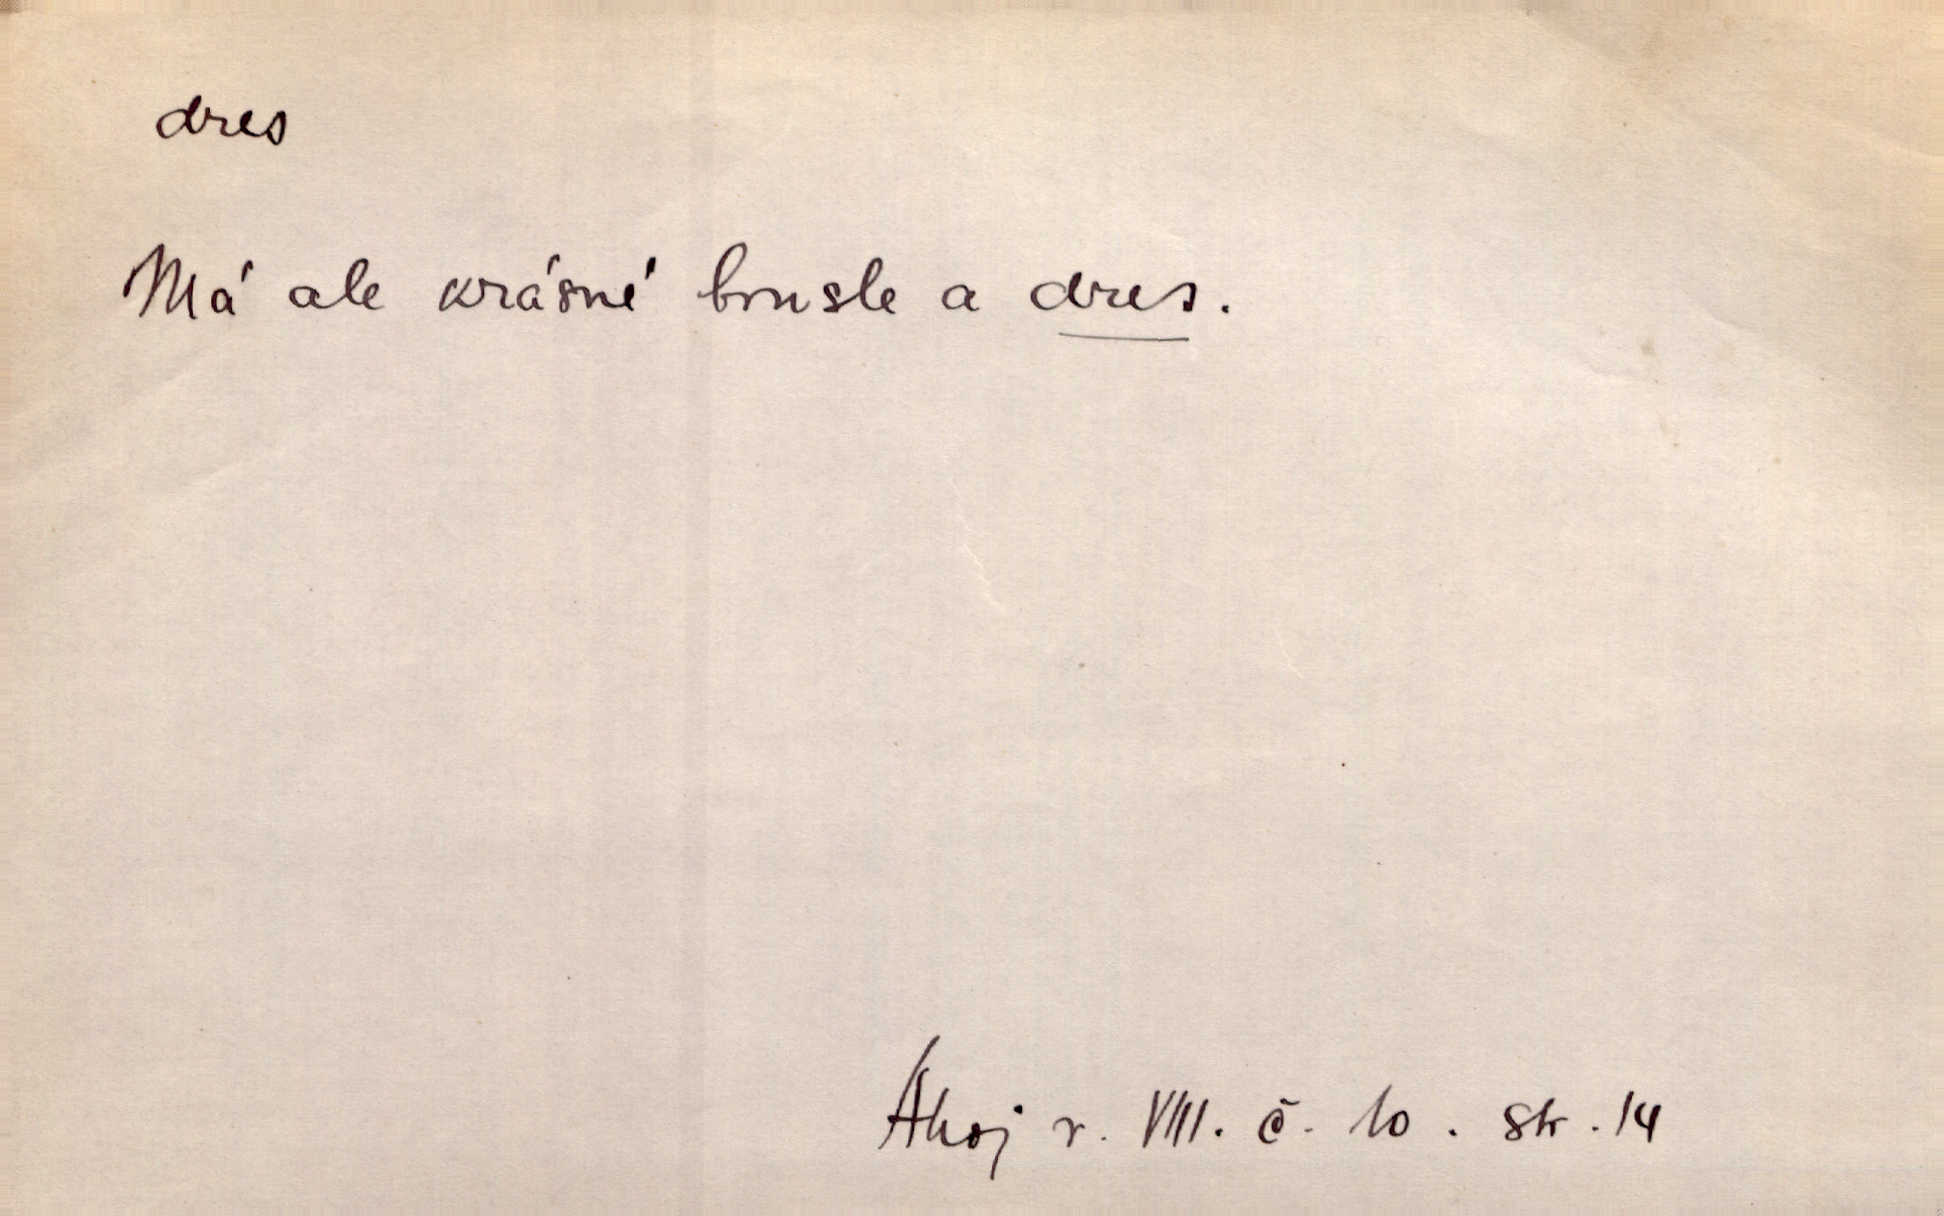 dres
Má ale krásné brusle a dres.
Ahoj r. VIII. č. 10. str. 14